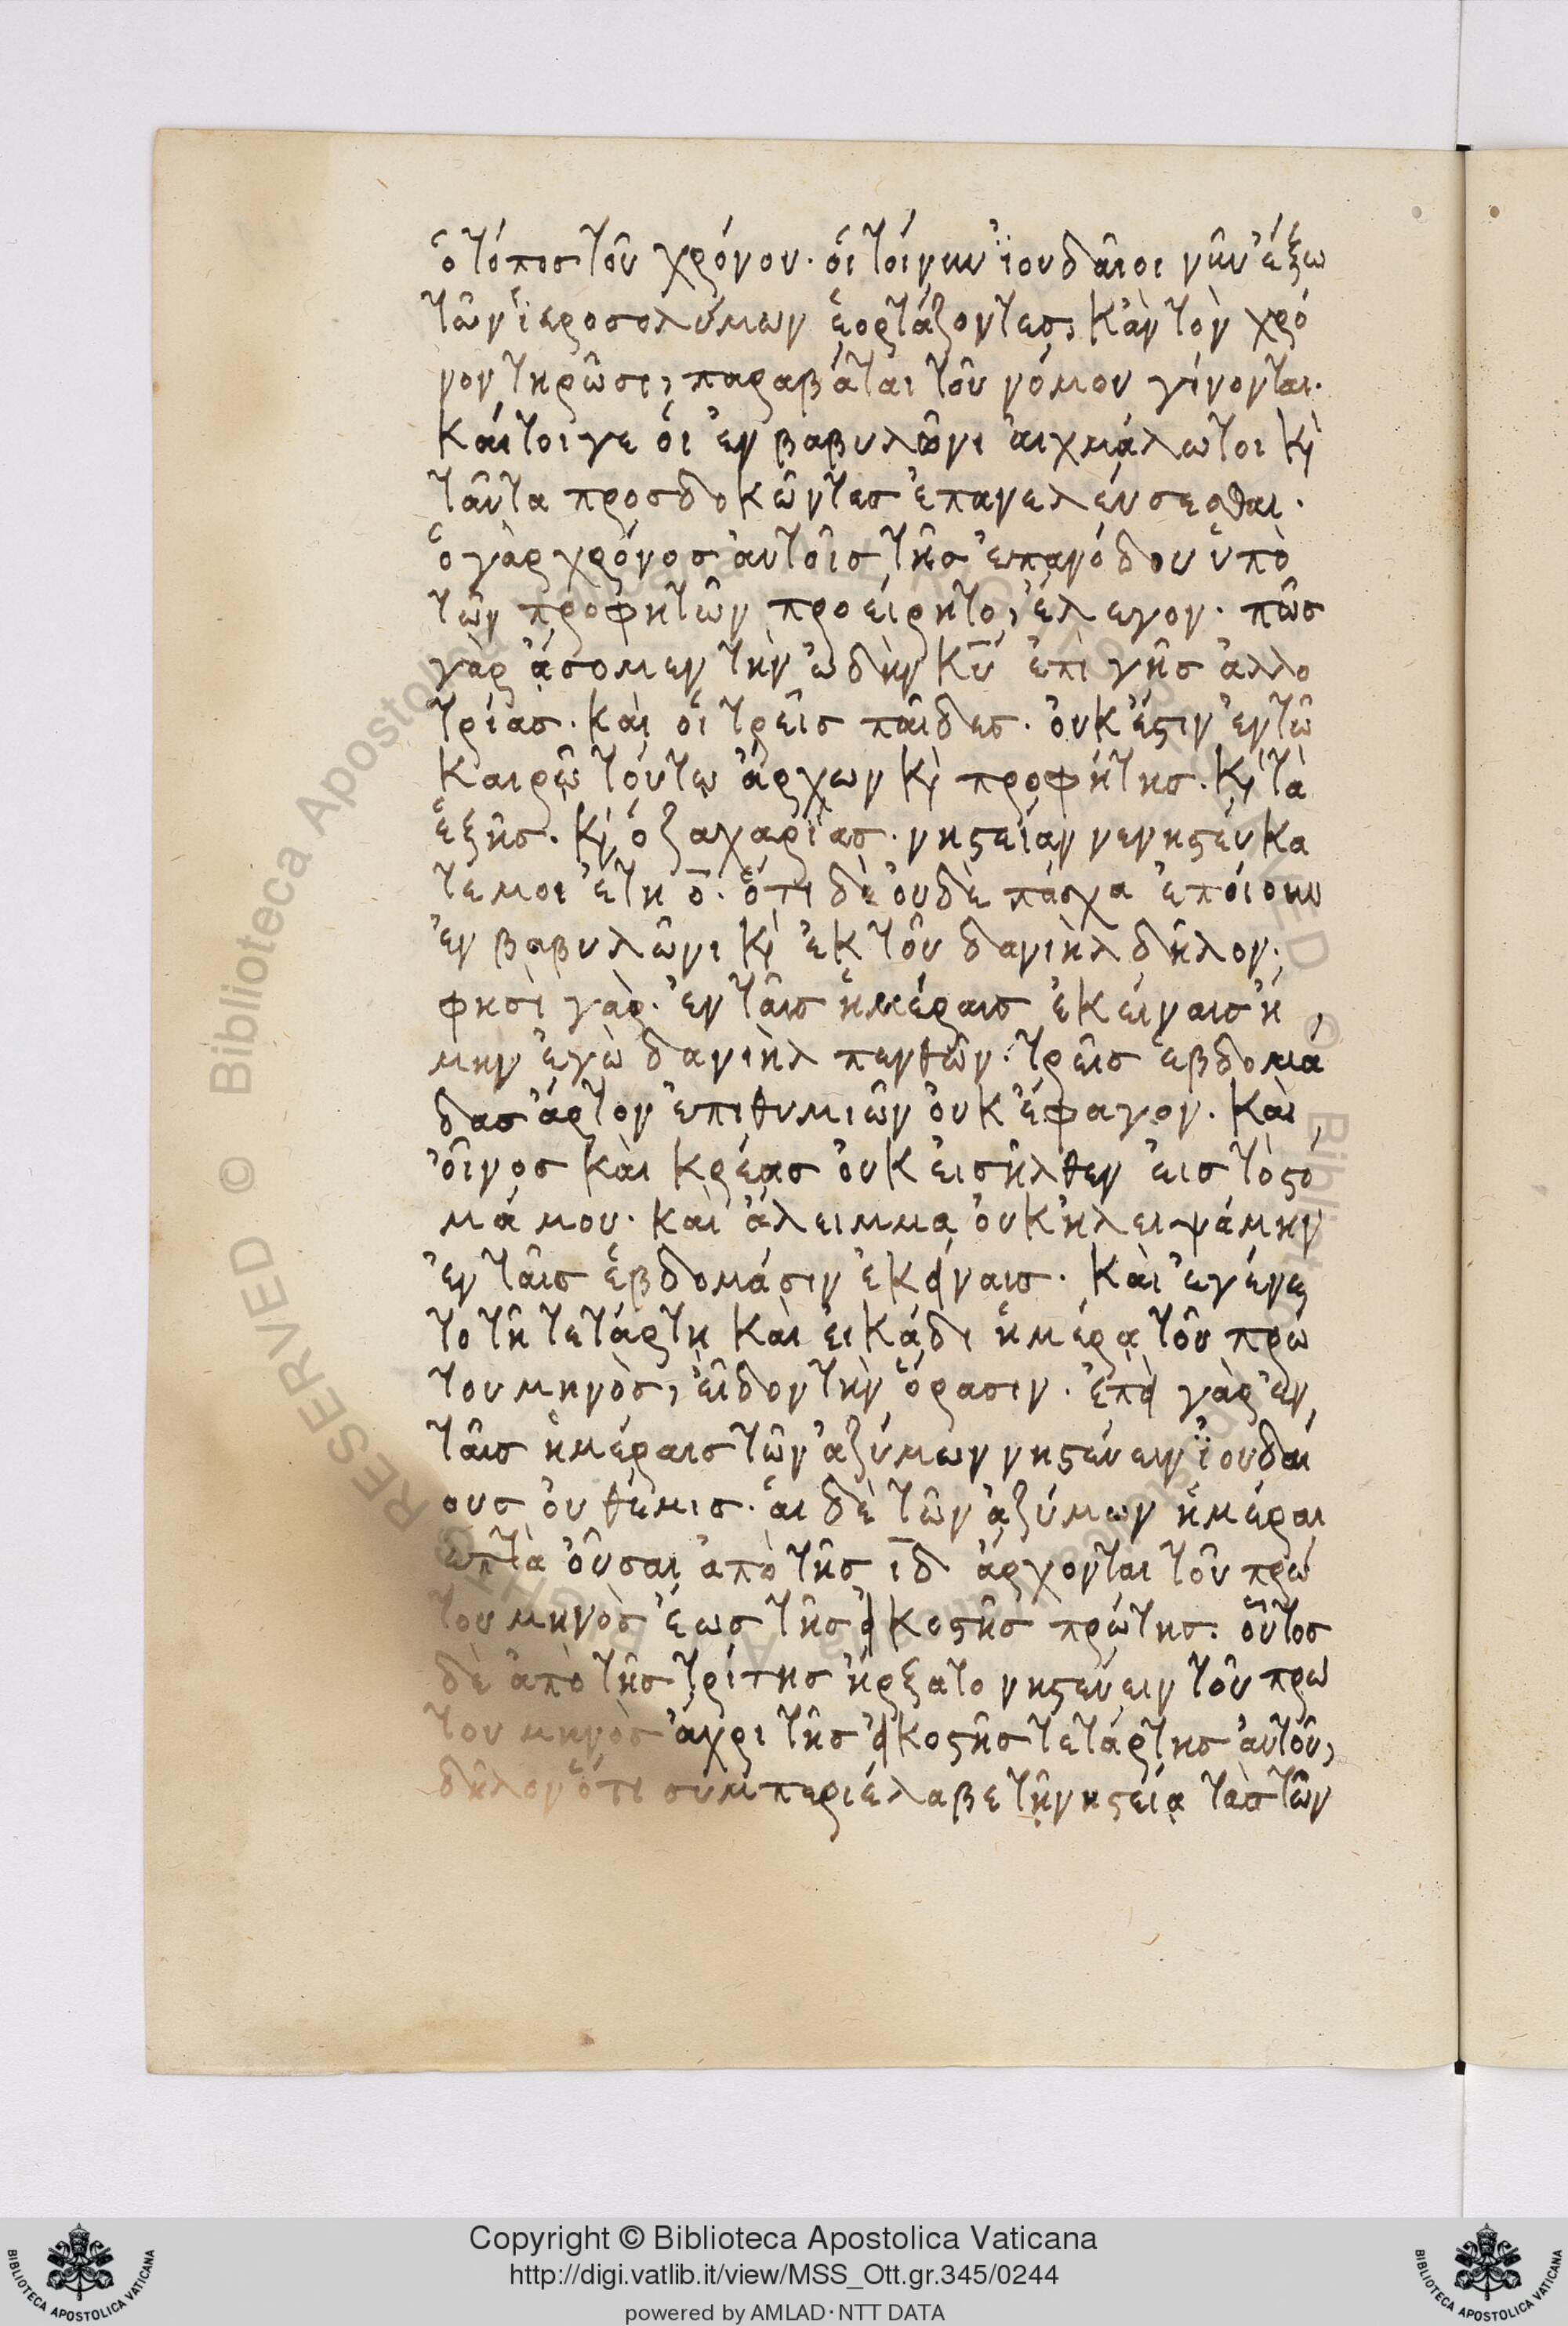 ὁ τόπος τοῦ χρόνου· ὁι τοίνυν ϊουδᾶιοι νῦν ἔξω
τῶν ϊεροσολύμων ἑορτάζοντες, κἂν τὸν χρό
νον τηρῶσι, παραβάται τοῦ νόμου γίνονται·
καίτοιγε ὁι ἐν βαβυλῶνι ἀιχμάλωτοι κὶ
ταῦτα προσδοκῶντες ἐπανελέυσεσθαι·
ὁ γὰρ χρόνος ἀυτοῖς τῆς ἐπανόδου ὑπὸ
τῶν προφητῶν προείρητο, ἔλεγον· πῶς
γὰρ ἄσομεν τὴν ὠδὴν κῡ ἐπὶ γῆς ἀλλο
τρίας· καὶ ὁι τρεῖς παῖδες· ὀυκ ἔστιν ἐν τῶ
καιρῶ τούτω ἄρχων κὶ προφήτης· κὶ τὰ
ἑξῆς· κὶ ὁ ζαχαρίας· νηστείαν νενηστεύκα
τε μοι ἔτη ο̄· ὅτι δὲ ὀυδὲ πάσχα ἐποίουν
ἐν βαβυλῶνι κὶ ἐκ τοῦ δανιὴλ δῆλον·
φησὶ γὰρ· ἐν ταῖς ἡμέραις ἐκείναις ἤ
μην ἐγὼ δανιὴλ πενθῶν· τρεῖς ἑβδομά
δας ἄρτον ἐπιθυμιῶν ὀυκ ἔφαγον· καὶ
ὄινος καὶ κρέας ὀυκ ἐισῆλθεν ἐις τὸ στό
μά μου· καὶ ἄλειμμα ὀυκ ἠλειψάμην
ἐν ταῖς ἑβδομάσιν ἐκείναις· καὶ ἐγένε
το τῆ τετάρτη καὶ ἐικάδι ἡμέρα τοῦ πρώ
του μηνὸς, εἶδον τὴν ὅρασιν· ἐπεὶ γὰρ ἐν
ταῖς ἡμέραις τῶν ἀζύμων νηστεύειν ϊουδαί
ους ὀυ θέμις· ἁι δὲ τῶν ἀζύμων ἡμέραι
ἑπτὰ ὀῦσαι ἀπὸ τῆς ῑδ ἄρχονται τοῦ πρώ
του μηνὸς ἕως τῆς εἰκοστῆς πρώτης· ὁῦτος
δὲ ἀπὸ τῆς τρίτης ἤρξατο νηστεύειν τοῦ πρώ
του μηνὸς ἄχρι τῆς εἰκοστῆς τετάρτης ἀυτοῦ,
δῆλον ὅτι συμπεριέλαβε τῆ νηστεία τὰς τῶν
Copyright © Biblioteca Apostolica Vaticana
http://digi.vatlib.it/view/MSS_Ott.gr.345/0244
powered by AMLAD·NTT DATA